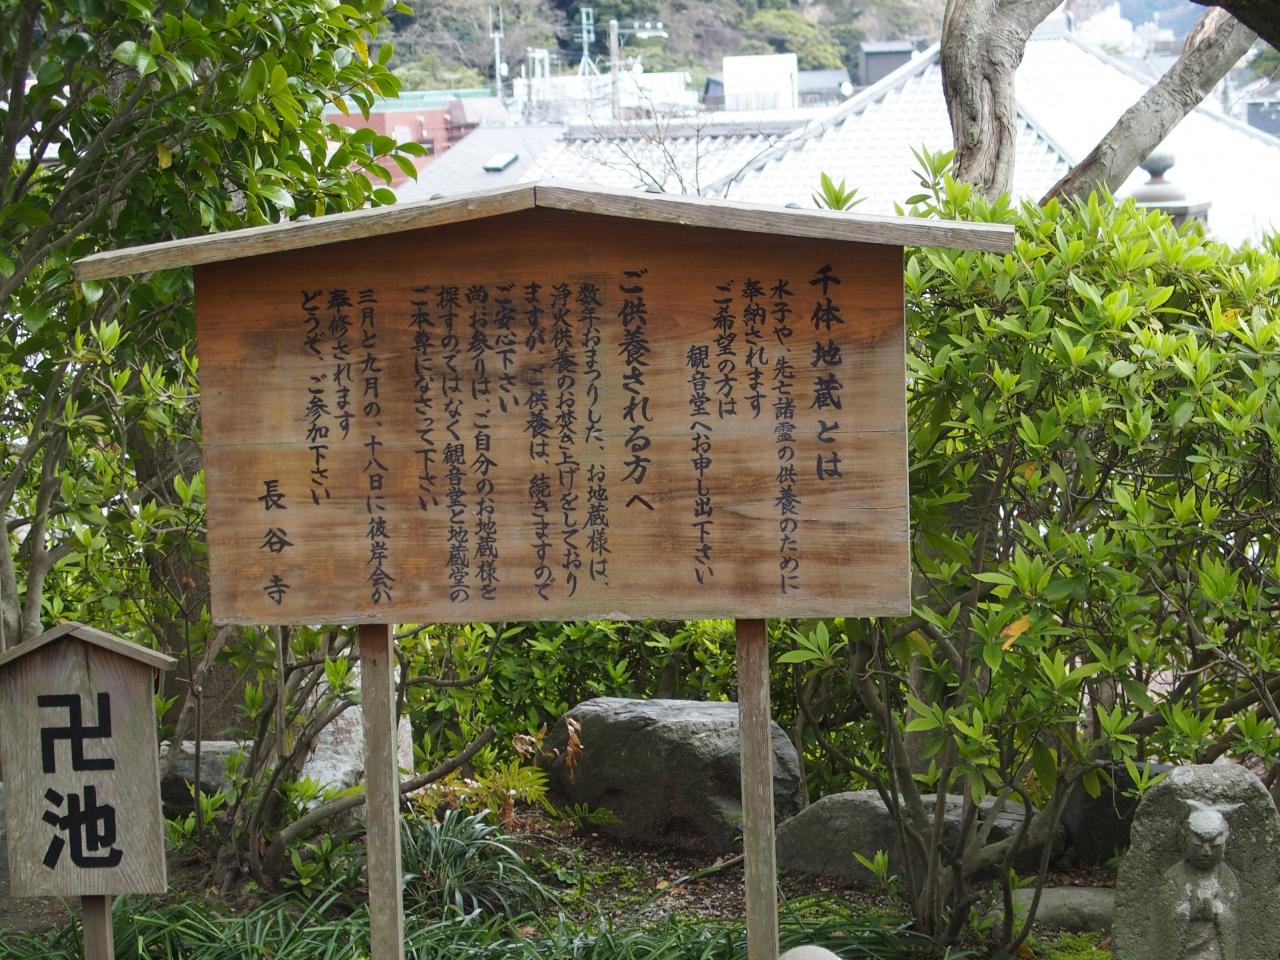 千体地蔵とは
水子や、先亡諸霊の供養のために
奉納されます
ご希望の方は
観音堂へお申し出下さい
ご供養される方へ
数年おまつりした、お地蔵様は、
浄火供養のお焚き上げをしており
ますが、ご供養は、続きますので
ご安心下さい
尚お参りは、ご自分のお地蔵様を
探すのではなく観音堂と地蔵堂の
ご本尊になさって下さい
三月と九月の、十八日に彼岸会が
奉修されます
どうぞ、ご参加下さい
長谷寺
卍池